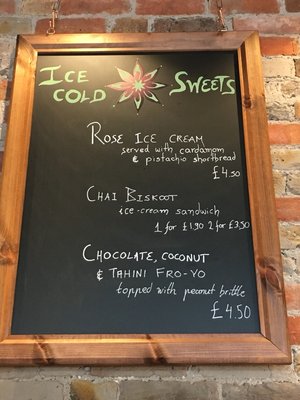 ICE COLD SWEETS
ROSE ICE CREAM
served with cardamom
& pistachio shortbread
£4.50
CHAI BISKOOT
ice-cream sandwich
1 for £1.90 2 for £3.50
CHOCOLATE, COCONUT
& TAHINI FRO-YO
topped with peanut brittle
£4.50